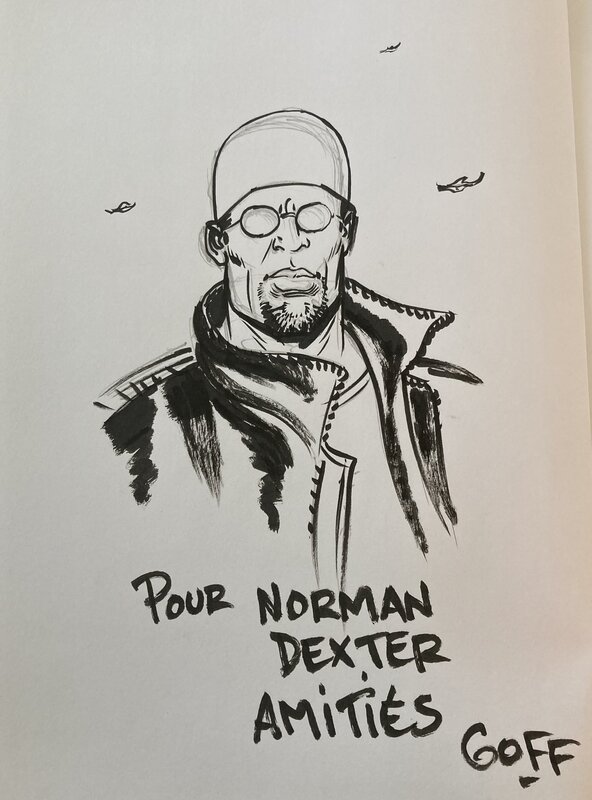 POUR NORMAN
DEXTER
AMITIÉS
GOFF